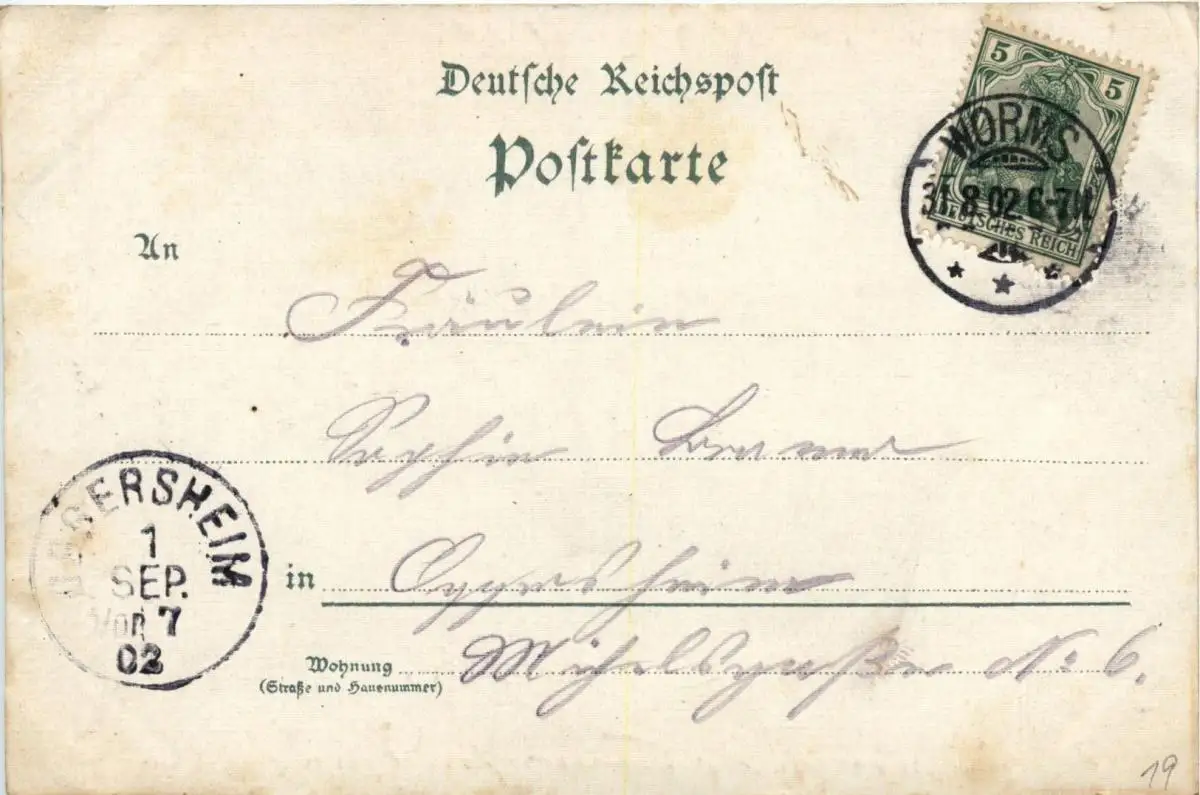 Deutsche Reichspost
Postkarte
5 5
DEUTSCHES REICH
WORMS
31.8.02.6-7N.
An
Fräulein
Sophie
OGGERSHEIM
1
SEP.
Vor 7
02
in Oggersheim
Wohnung
(Straße und Hausnummer)
No 6.
19